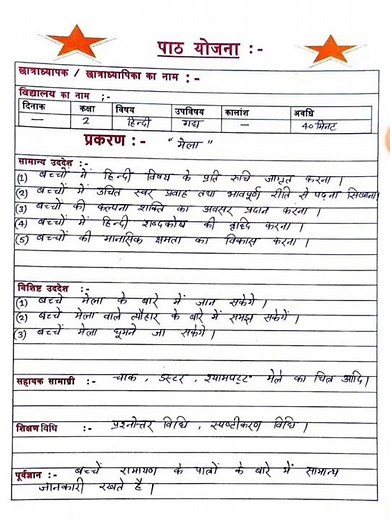 पाठ योजना :-
छात्राध्यापक / छात्राध्यापिका का नाम : -
विद्यालय का नाम ;-
दिनाक कक्षा विषय उपविषय कालांश अवधि
— 2 हिन्दी गद्य — 40 मिनट
प्रकरण :- " मेला "
सामान्य उददेश :-
(1) बच्चों में हिन्दी विषय के प्रति रुचि जागृत करना ।
(2) बच्चों में उचित स्वर प्रवाह तथा भावपूर्ण रीति से पढ़ना सिखाना।
(3) बच्चों की कल्पना शक्ति का अवसर प्रदान करना ।
(4) बच्चों में हिन्दी शब्दकोष की वृद्धि करना ।
(5) बच्चों की मानसिक क्षमता का विकास करना ।
विशिष्ट उददेश :-
(1) बच्चे मेला के बारे में जान सकेगे ।
(2) बच्चे मेला वाले त्यौहार के बारे में समझ सकेगें ।
(3) बच्चें मेला घूमने जा सकेगे ।
सहायक सामाग्री :- चाक , डस्टर , श्यामपट्ट मेले का चित्र आदि।
शिक्षण विधि :- प्रश्नोत्तर विधि , स्पष्टीकरण विधि ।
पूर्वज्ञान :- बच्चें रामायण के पात्रों के बारे में सामान्य
जानकारी रखते है ।